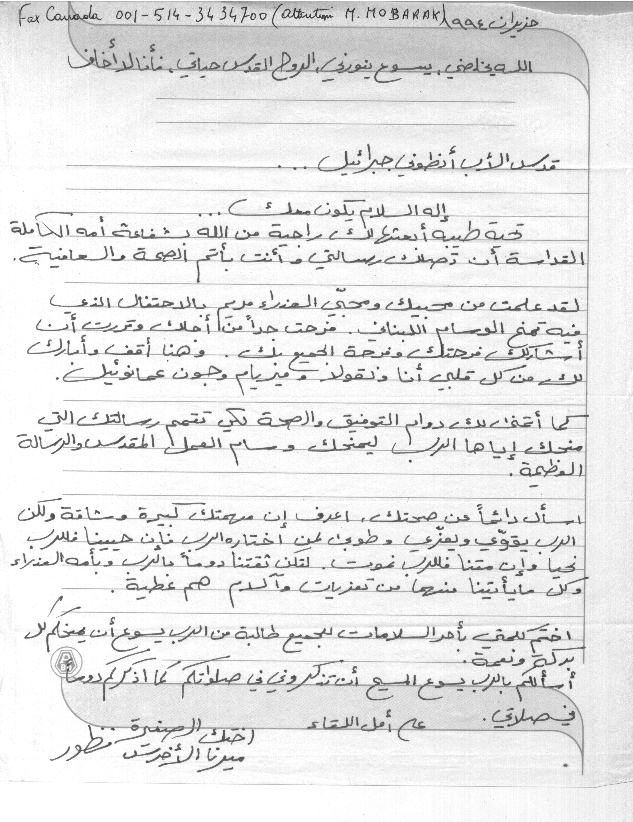 Fax Canada 001-514-3434700 (Attention M. MOBARAK) حزيران ٩٩٤
الله يخلصني، يسوع ينورني، الروح القدس حياتي، فأنا لا أخاف
قدس الأب أنطوني جبرائيل ...
إله السلام يكون معك ...
تحية طيبة أبعثها لك راجية من الله بشفاعة أمه الكاملة
القداسة أن تصلك رسالتي وأنت بأتم الصحة والعافية.
لقد علمت من محبيك ومحبّي العذراء مريم بالاحتفال الذي
فيه تمنح الوسام اللبناني. فرحت جداً من أجلك وقررت أن
أشاركك فرحتك وفرحة الجميع بك. وهنا أقف وأبارك
لك من كل قلبي أنا ونقولا وميريام وجون عمانوئيل.
كما أتمنى لك دوام التوفيق والصحة لكي تتمم رسالتك التي
منحك إياها الرب ليمنحك وسام العمل المقدس والرسالة
العظيمة.
اسأل دائماً عن صحتك، اعرف إن مهمتك كبيرة وشاقة ولكن
الرب يقوّي ويعزّي وطوبى لمن اختاره الرب فإن حيينا فللرب
نحيا وإن متنا فللرب نموت. لتكن ثقتنا دوماً بالرب وبأمه العذراء
وكل ما يأتينا منهما من تعزيات وآلام هم عطية.
اختم كلمتي بأحر السلامات للجميع طالبة من الرب يسوع أن يمنحكم كل
بركة ونعمة.
أسألكم بالرب يسوع المسيح أن تذكروني في صلواتكم كما أذكركم دوماً
في صلاتي.
على أمل اللقاء
اختك الصغيرة
ميرنا الأخرس نظور